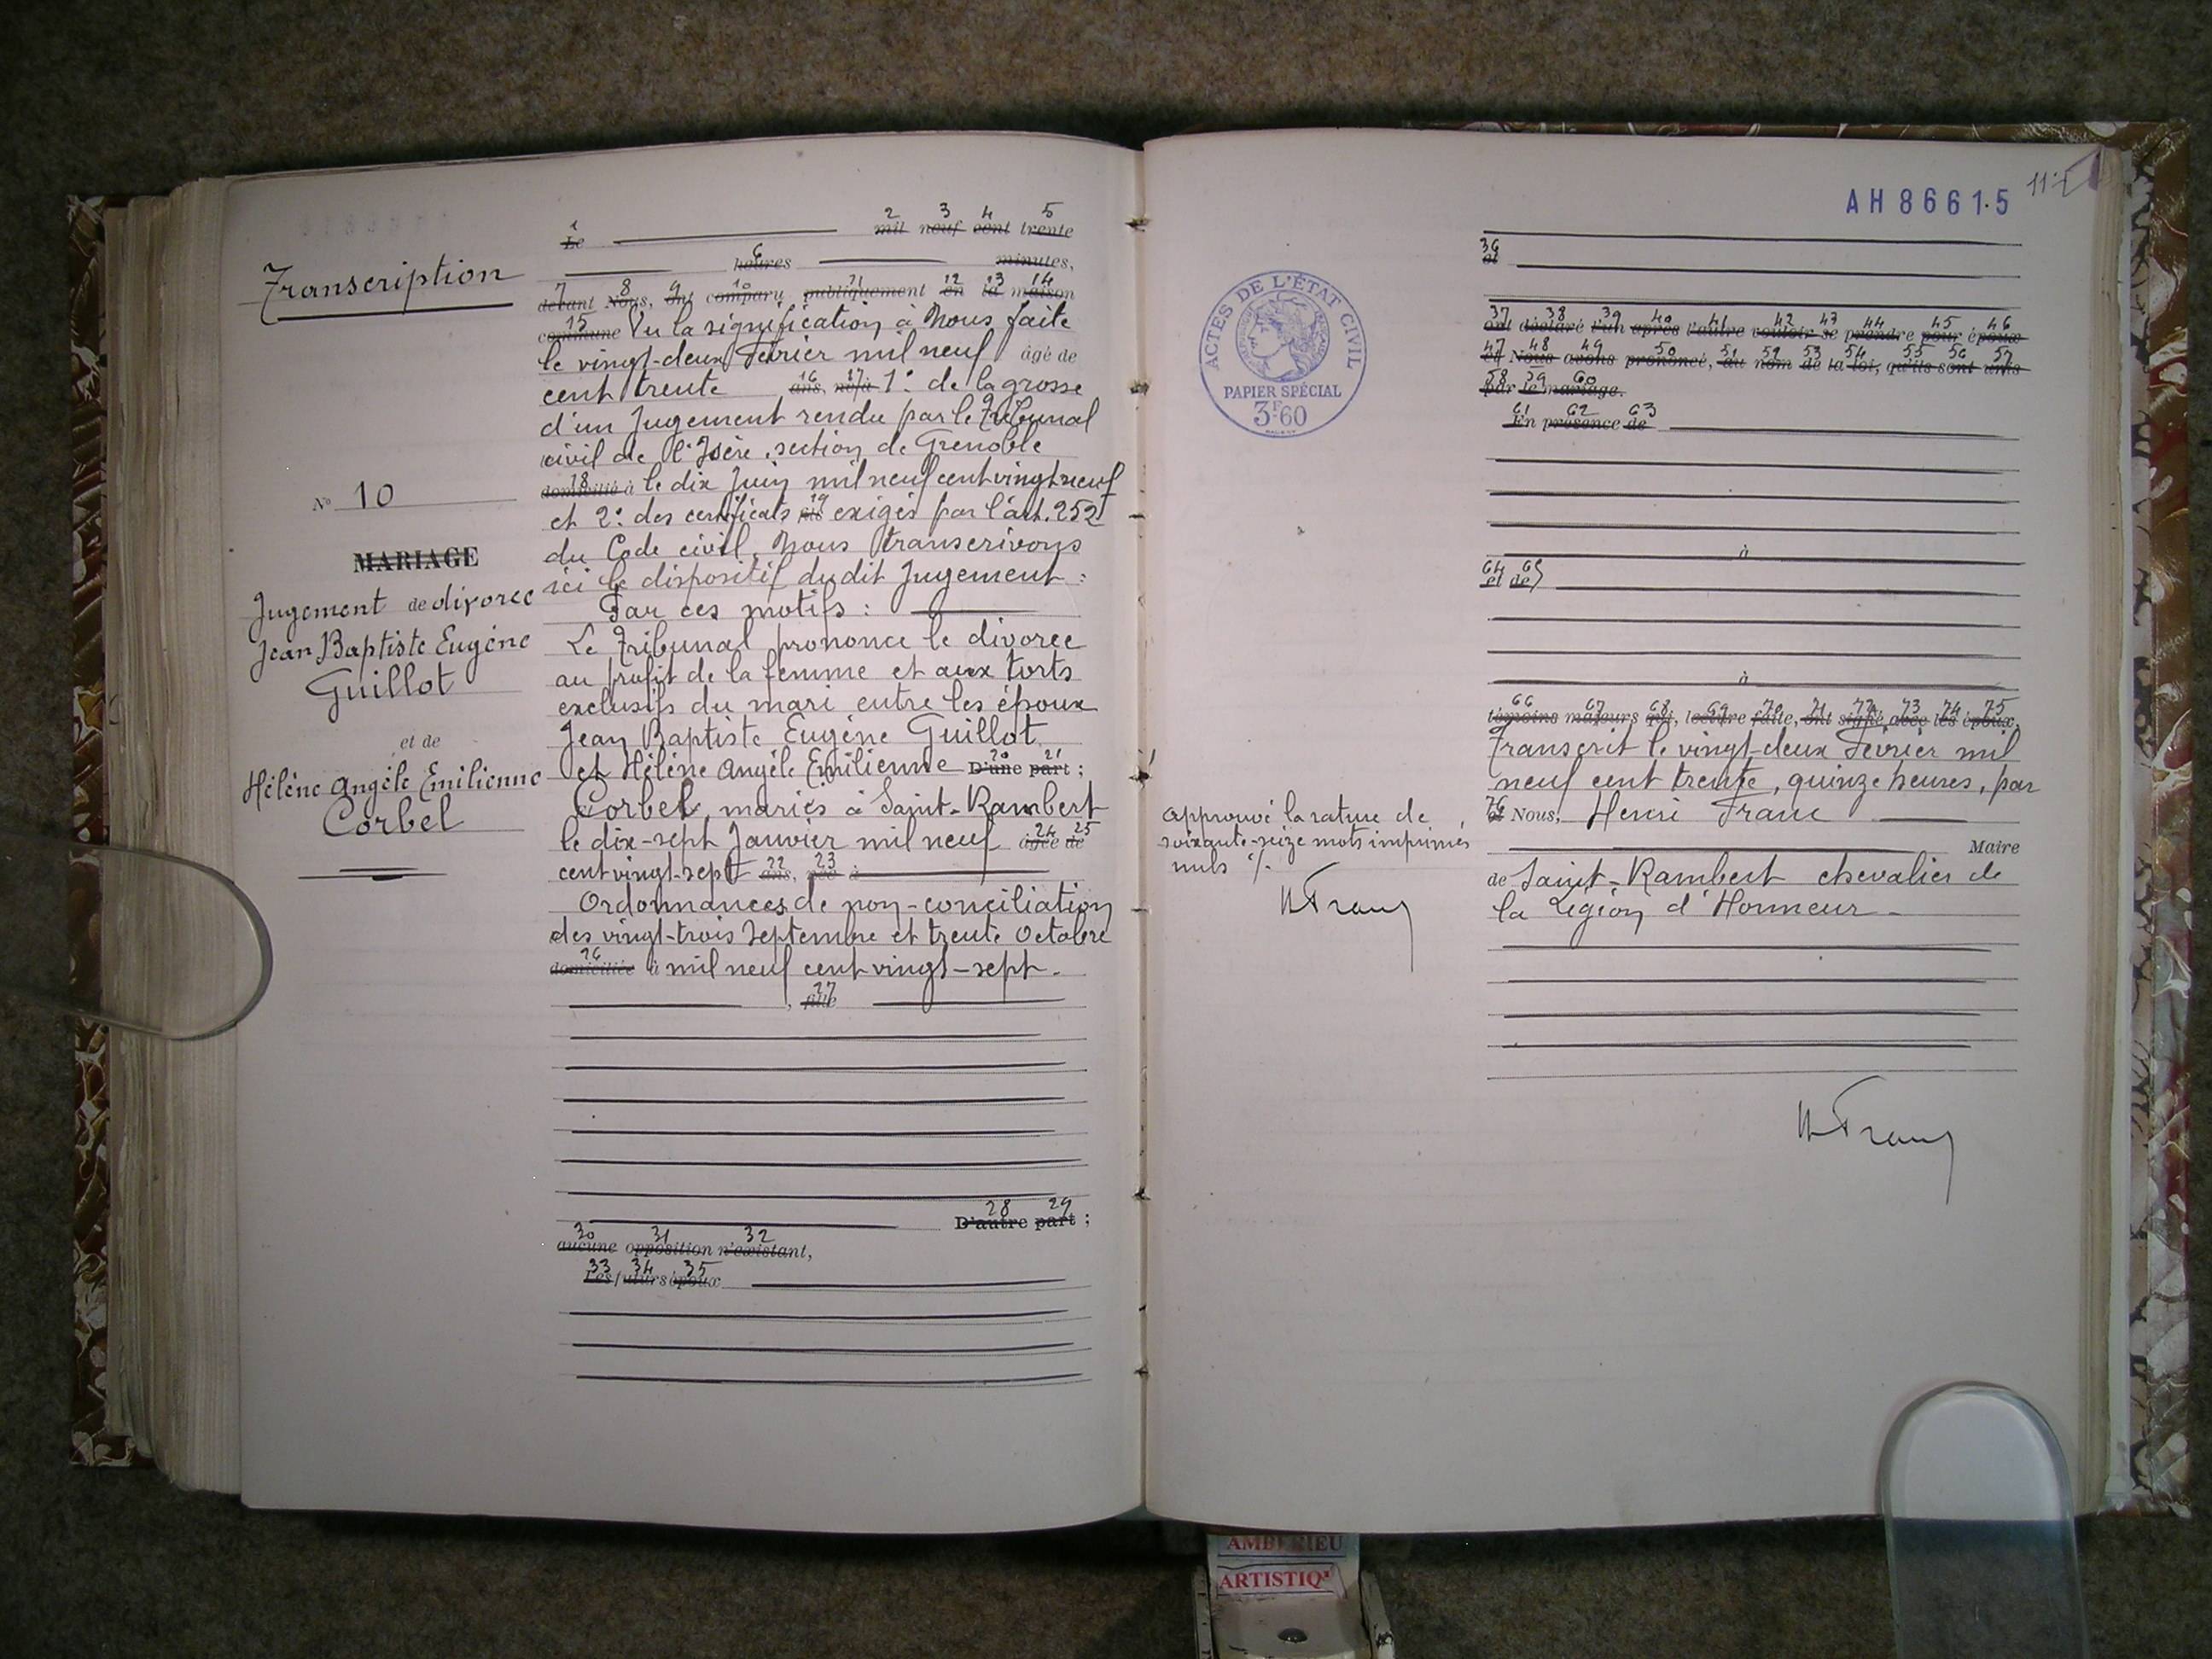 Transcription
N° 10
MARIAGE
Jugement de divorce
Jean Baptiste Eugène
Guillot
et de
Hélène Angèle Emilienne
Corbel
1 2 3 4 5
Le mil neuf cent trente
6
heures minutes,
7 8 9 10 11 12 13 14
devant Nous, ont comparu publiquement en la maison
15
commune Vu la signification à Nous faite
le vingt-deux Février mil neuf âgé de
16 17
cent trente ans, né à 1° de la grosse
d'un Jugement rendu par le Tribunal
civil de l'Isère, section de Grenoble
18
domicilié à le dix Juin mil neuf cent vingt neuf
19
et 2° des certificats fils exigés par l'art. 252
du Code civil, Nous transcrivons
ici le dispositif du dit Jugement :
Par ces motifs :
Le Tribunal prononce le divorce
au profit de la femme et aux torts
exclusifs du mari entre les époux
Jean Baptiste Eugène Guillot
20 21
et Hélène Angèle Emilienne D'une part ;
Corbel, mariés à Saint-Rambert
24 25
le dix-sept Janvier mil neuf âgée de
22 23
cent vingt-sept ans, née à
Ordonnances de non-conciliation
des vingt-trois Septembre et trente Octobre
26
domiciliée à mil neuf cent vingt-sept.
27
, fille
28 29
D'autre part ;
30 31 32
aucune opposition n'existant,
33 34 35
Les futurs époux
AH 8661·5
ACTES DE L'ÉTAT CIVIL
PAPIER SPÉCIAL
3F60
36
et
37 38 39 40 41 42 43 44 45 46
ont déclaré l'un après l'autre vouloir se prendre pour époux
47 48 49 50 51 52 53 54 55 56 57
et Nous avons prononcé, au nom de la loi, qu'ils sont unis
58 59 60
par le mariage.
61 62 63
En présence de
à
64 65
et de
à
66 67 68 69 70 71 72 73 74 75
témoins majeurs qui, lecture faite, ont signé avec les époux,
Transcrit le vingt-deux Février mil
neuf cent trente, quinze heures, par
76
et Nous, Henri Franc
Maire
de Saint-Rambert chevalier de
la Légion d'Honneur
Approuvé la rature de
soixante-seize mots imprimés
nuls
H Franc
H Franc
AMBERIEU
ARTISTIQ